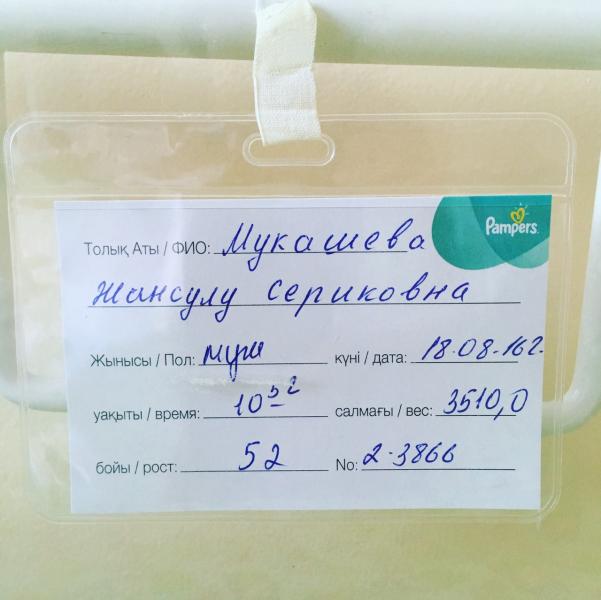 Pampers
Толық Аты / ФИО: Мукашева
Жансулу Сериковна
Жынысы / Пол: муж күні / дата: 18.08.16г.
уақыты / время: 10 52 салмағы / вес: 3510,0
бойы / рост: 52 No: 2-3866